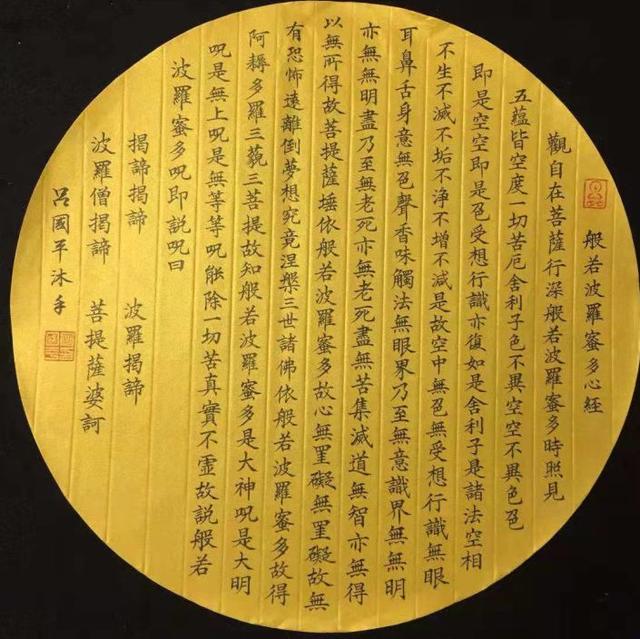 般若波羅蜜多心經
觀自在菩薩行深般若波羅蜜多時照見
五蘊皆空度一切苦厄舍利子色不異空空不異色色
即是空空即是色受想行識亦復如是舍利子是諸法空相
不生不滅不垢不淨不增不減是故空中無色無受想行識無眼
耳鼻舌身意無色聲香味觸法無眼界乃至無意識界無無明
亦無無明盡乃至無老死亦無老死盡無苦集滅道無智亦無得
以無所得故菩提薩埵依般若波羅蜜多故心無罣礙無罣礙故無
有恐怖遠離倒夢想究竟涅槃三世諸佛依般若波羅蜜多故得
阿耨多羅三藐三菩提故知般若波羅蜜多是大神呪是大明
呪是無上呪是無等等呪能除一切苦真實不虛故説般若
波羅蜜多呪即説呪曰
揭諦揭諦 波羅揭諦
波羅僧揭諦 菩提薩婆訶
呂國平沐手